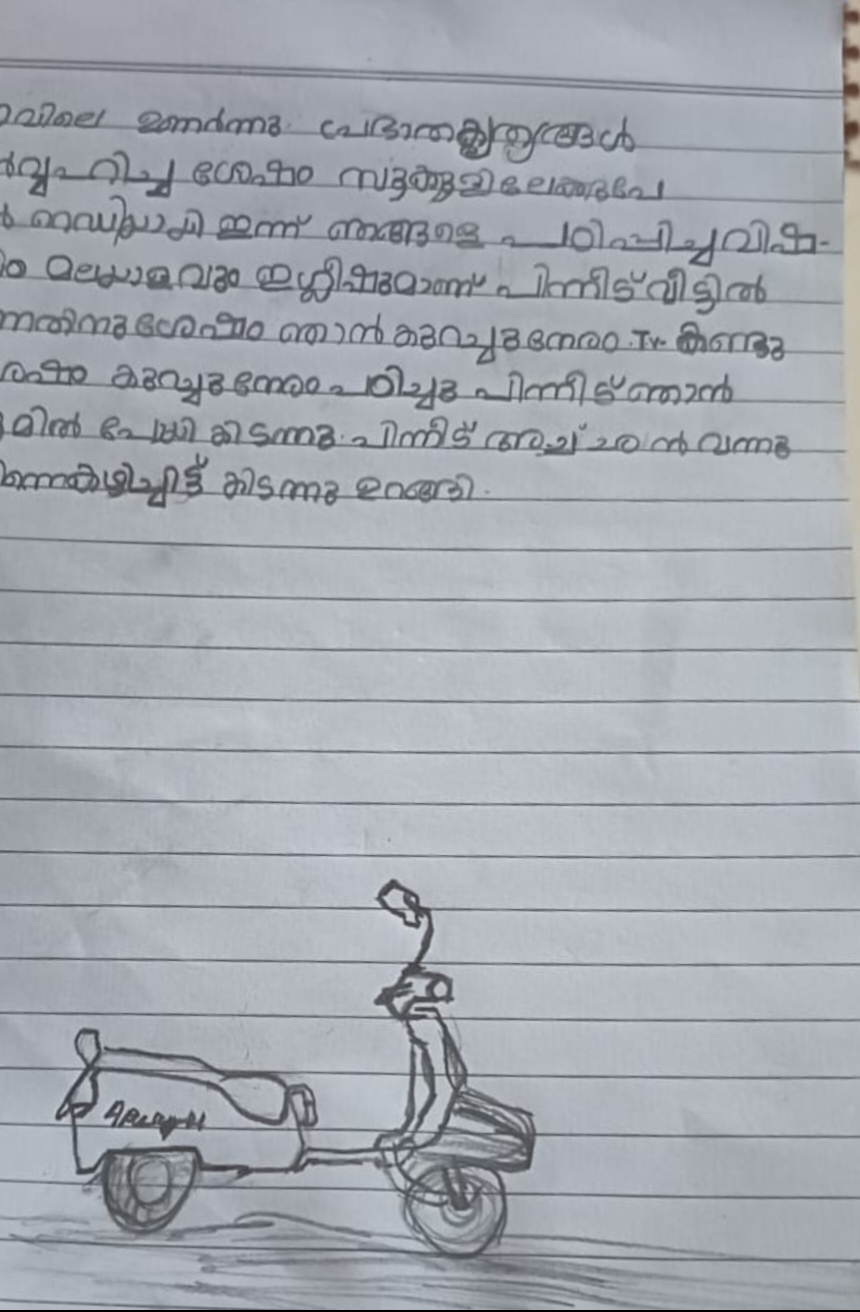 ാവിലെ ഉണർന്നു പ്രഭാതകൃത്യങ്ങൾ
ർവ്വഹിച്ച ശേഷം സ്കൂളിലേങ്ങുപേ
ൾ റെഡിയായി ഇന്ന് ഞങ്ങളെ പഠിപ്പിച്ച വിഷ-
ം മലയാളവും ഇംഗ്ലീഷുമാണ് പിന്നീട് വീട്ടിൽ
ന്നതിനുശേഷം ഞാൻ കുറച്ചുനേരം Tv കണ്ടു
ശേഷം കുറച്ചുനേരം പഠിച്ചു പിന്നീട് ഞാൻ
ൂമിൽ പോയി കിടന്നു. പിന്നീട് അച്ഛൻ വന്നു
കഴിച്ചിട്ട് കിടന്നു ഉറങ്ങി.